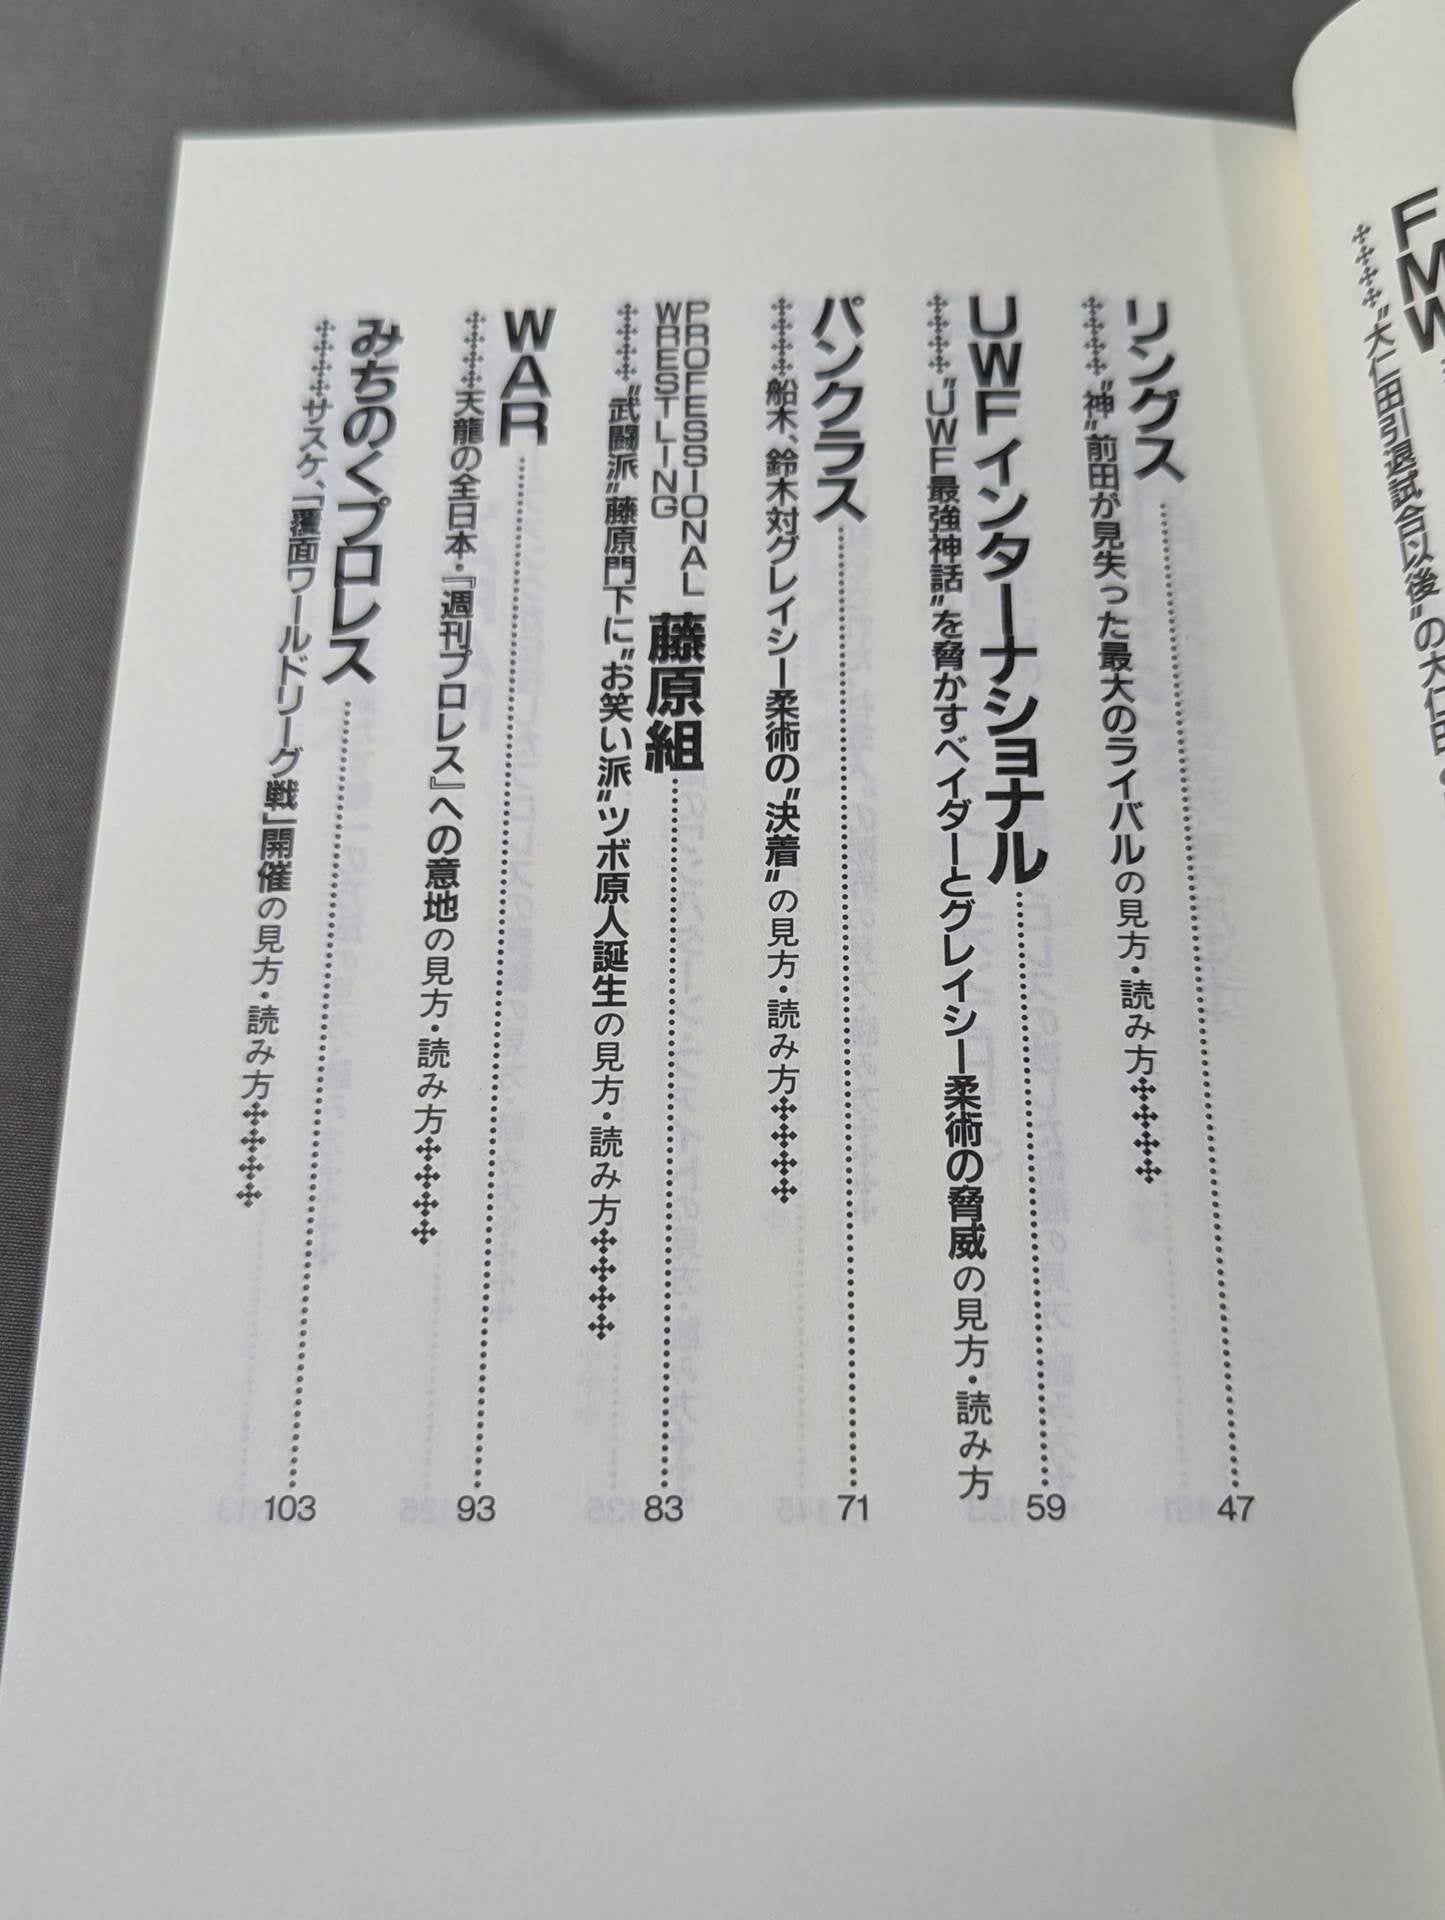 FMW
"大仁田引退試合以後"の大仁田
リングス……47
"神"前田が見失った最大のライバルの見方・読み方
UWFインターナショナル……59
"UWF最強神話"を脅かすベイダーとグレイシー柔術の脅威の見方・読み方
パンクラス……71
船木、鈴木対グレイシー柔術の"決着"の見方・読み方
PROFESSIONAL WRESTLING 藤原組……83
"武闘派"藤原門下に"お笑い派"ツボ原人誕生の見方・読み方
WAR……93
天龍の全日本・『週刊プロレス』への意地の見方・読み方
みちのくプロレス……103
サスケ、「覆面ワールドリーグ戦」開催の見方・読み方